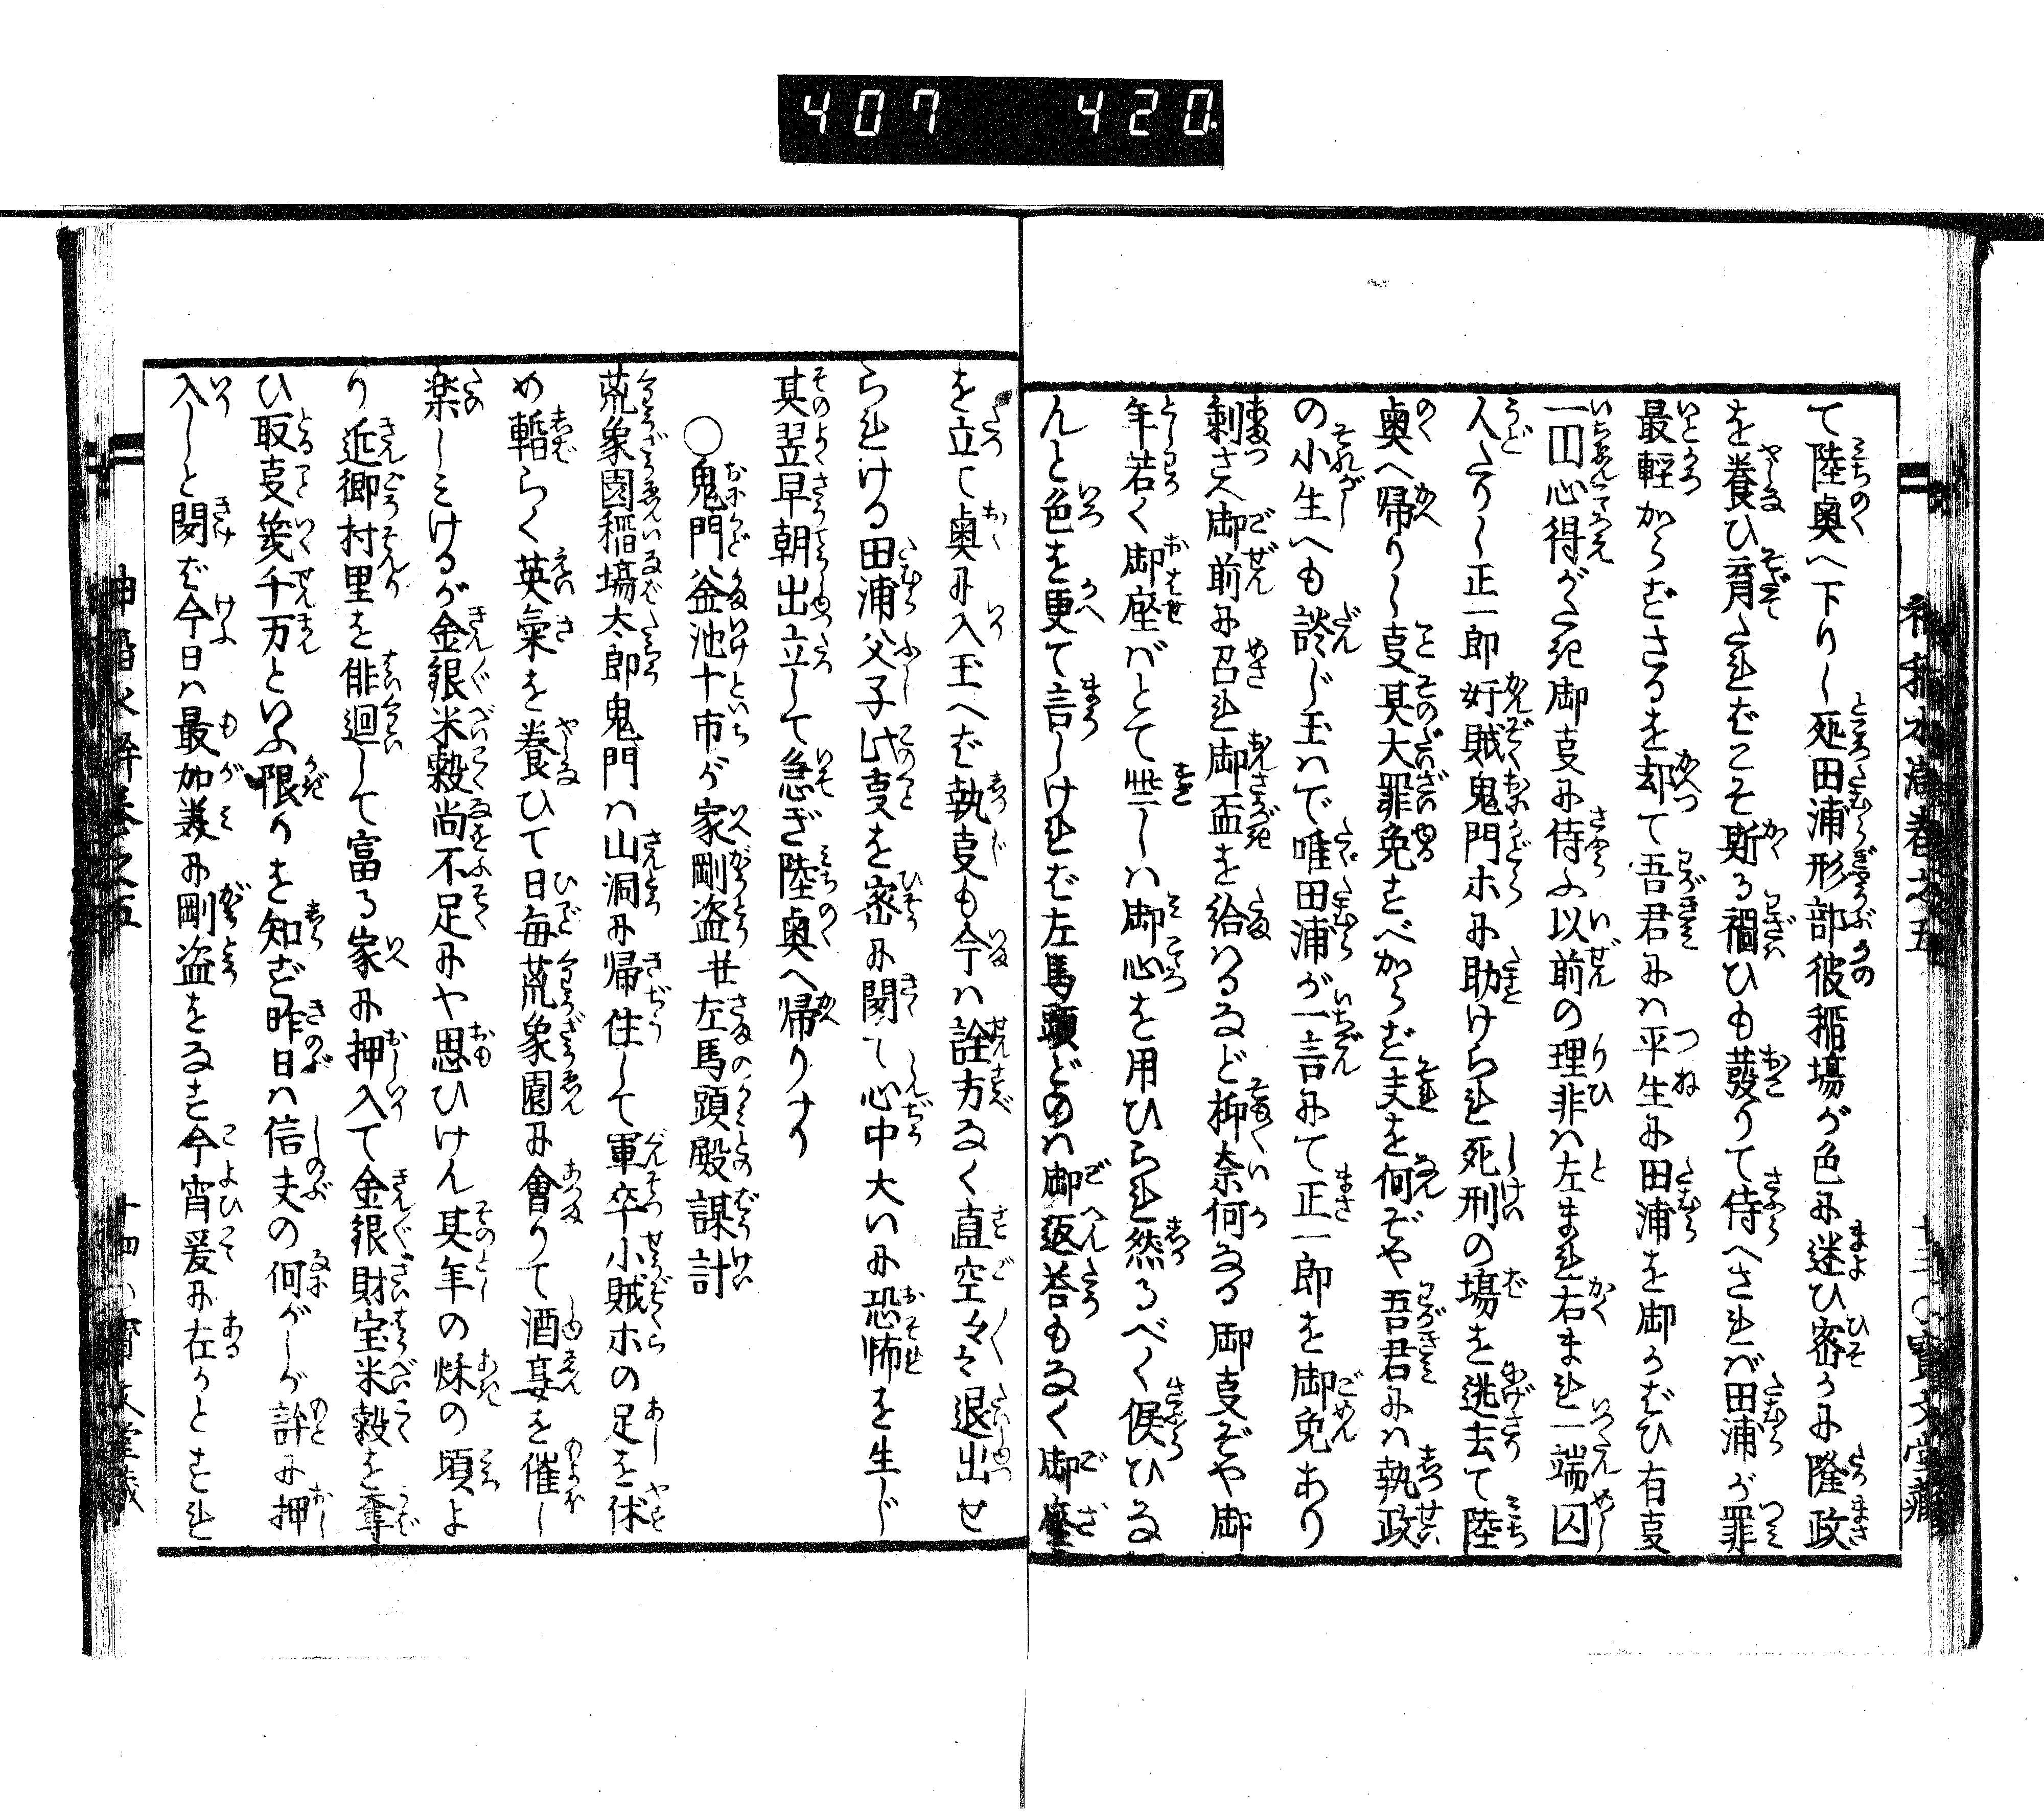 407 420.
て陸奥へ下りし処田浦形部彼稲場が色に迷ひ密かに隆政
を養ひ育たればこそ斯る禍ひも発りて侍へされバ田浦が罪
最軽からざさるを却て吾君にハ平生に田浦を御かばひ有事
一円心得がたき御事に侍ふ以前の理非ハ左まれ右まれ一端囚
人たりし正一郎奸賊鬼門ホに助けられ死刑の場を逃去て陸
奥へ帰りし事其大罪免すべからず夫を何ぞや吾君にハ執政
の小生へも談じ玉ハで唯田浦が一言にて正一郎を御免あり
剰さへ御前に召れ御盃を給ハるなど抑奈何なる御事ぞや御
年若く御座バとて悲しハ御心を用ひられ然るべく候ひな
んと色を更て言しければ左馬頭どのハ御返答もなく御座
を立て奥に入玉へば執事も今ハ詮方なく直空々と退出せ
られける田浦父子此事を密に聞て心中大いに恐怖を生じ
其翌早朝出立して急ぎ陸奥へ帰りけり
○鬼門釜池十市が家剛盗廿左馬頭殿謀計
荒象園稲場太郎鬼門ハ山洞に帰住して軍卒小賊ホの足を休
め暫らく英気を養ひて日毎荒象園に会りて酒宴を催し
楽しみけるが金銀米穀尚不足にや思ひけん其年の秋の頃よ
り近郷村里を俳廻して富る家に押入て金銀財宝米穀を奪
ひ取事幾千万といふ限りを知ず昨日ハ信夫の何がしが許に押
入しと聞ば今日ハ最加美に剛盗をなし今宵爰に在かとすれ